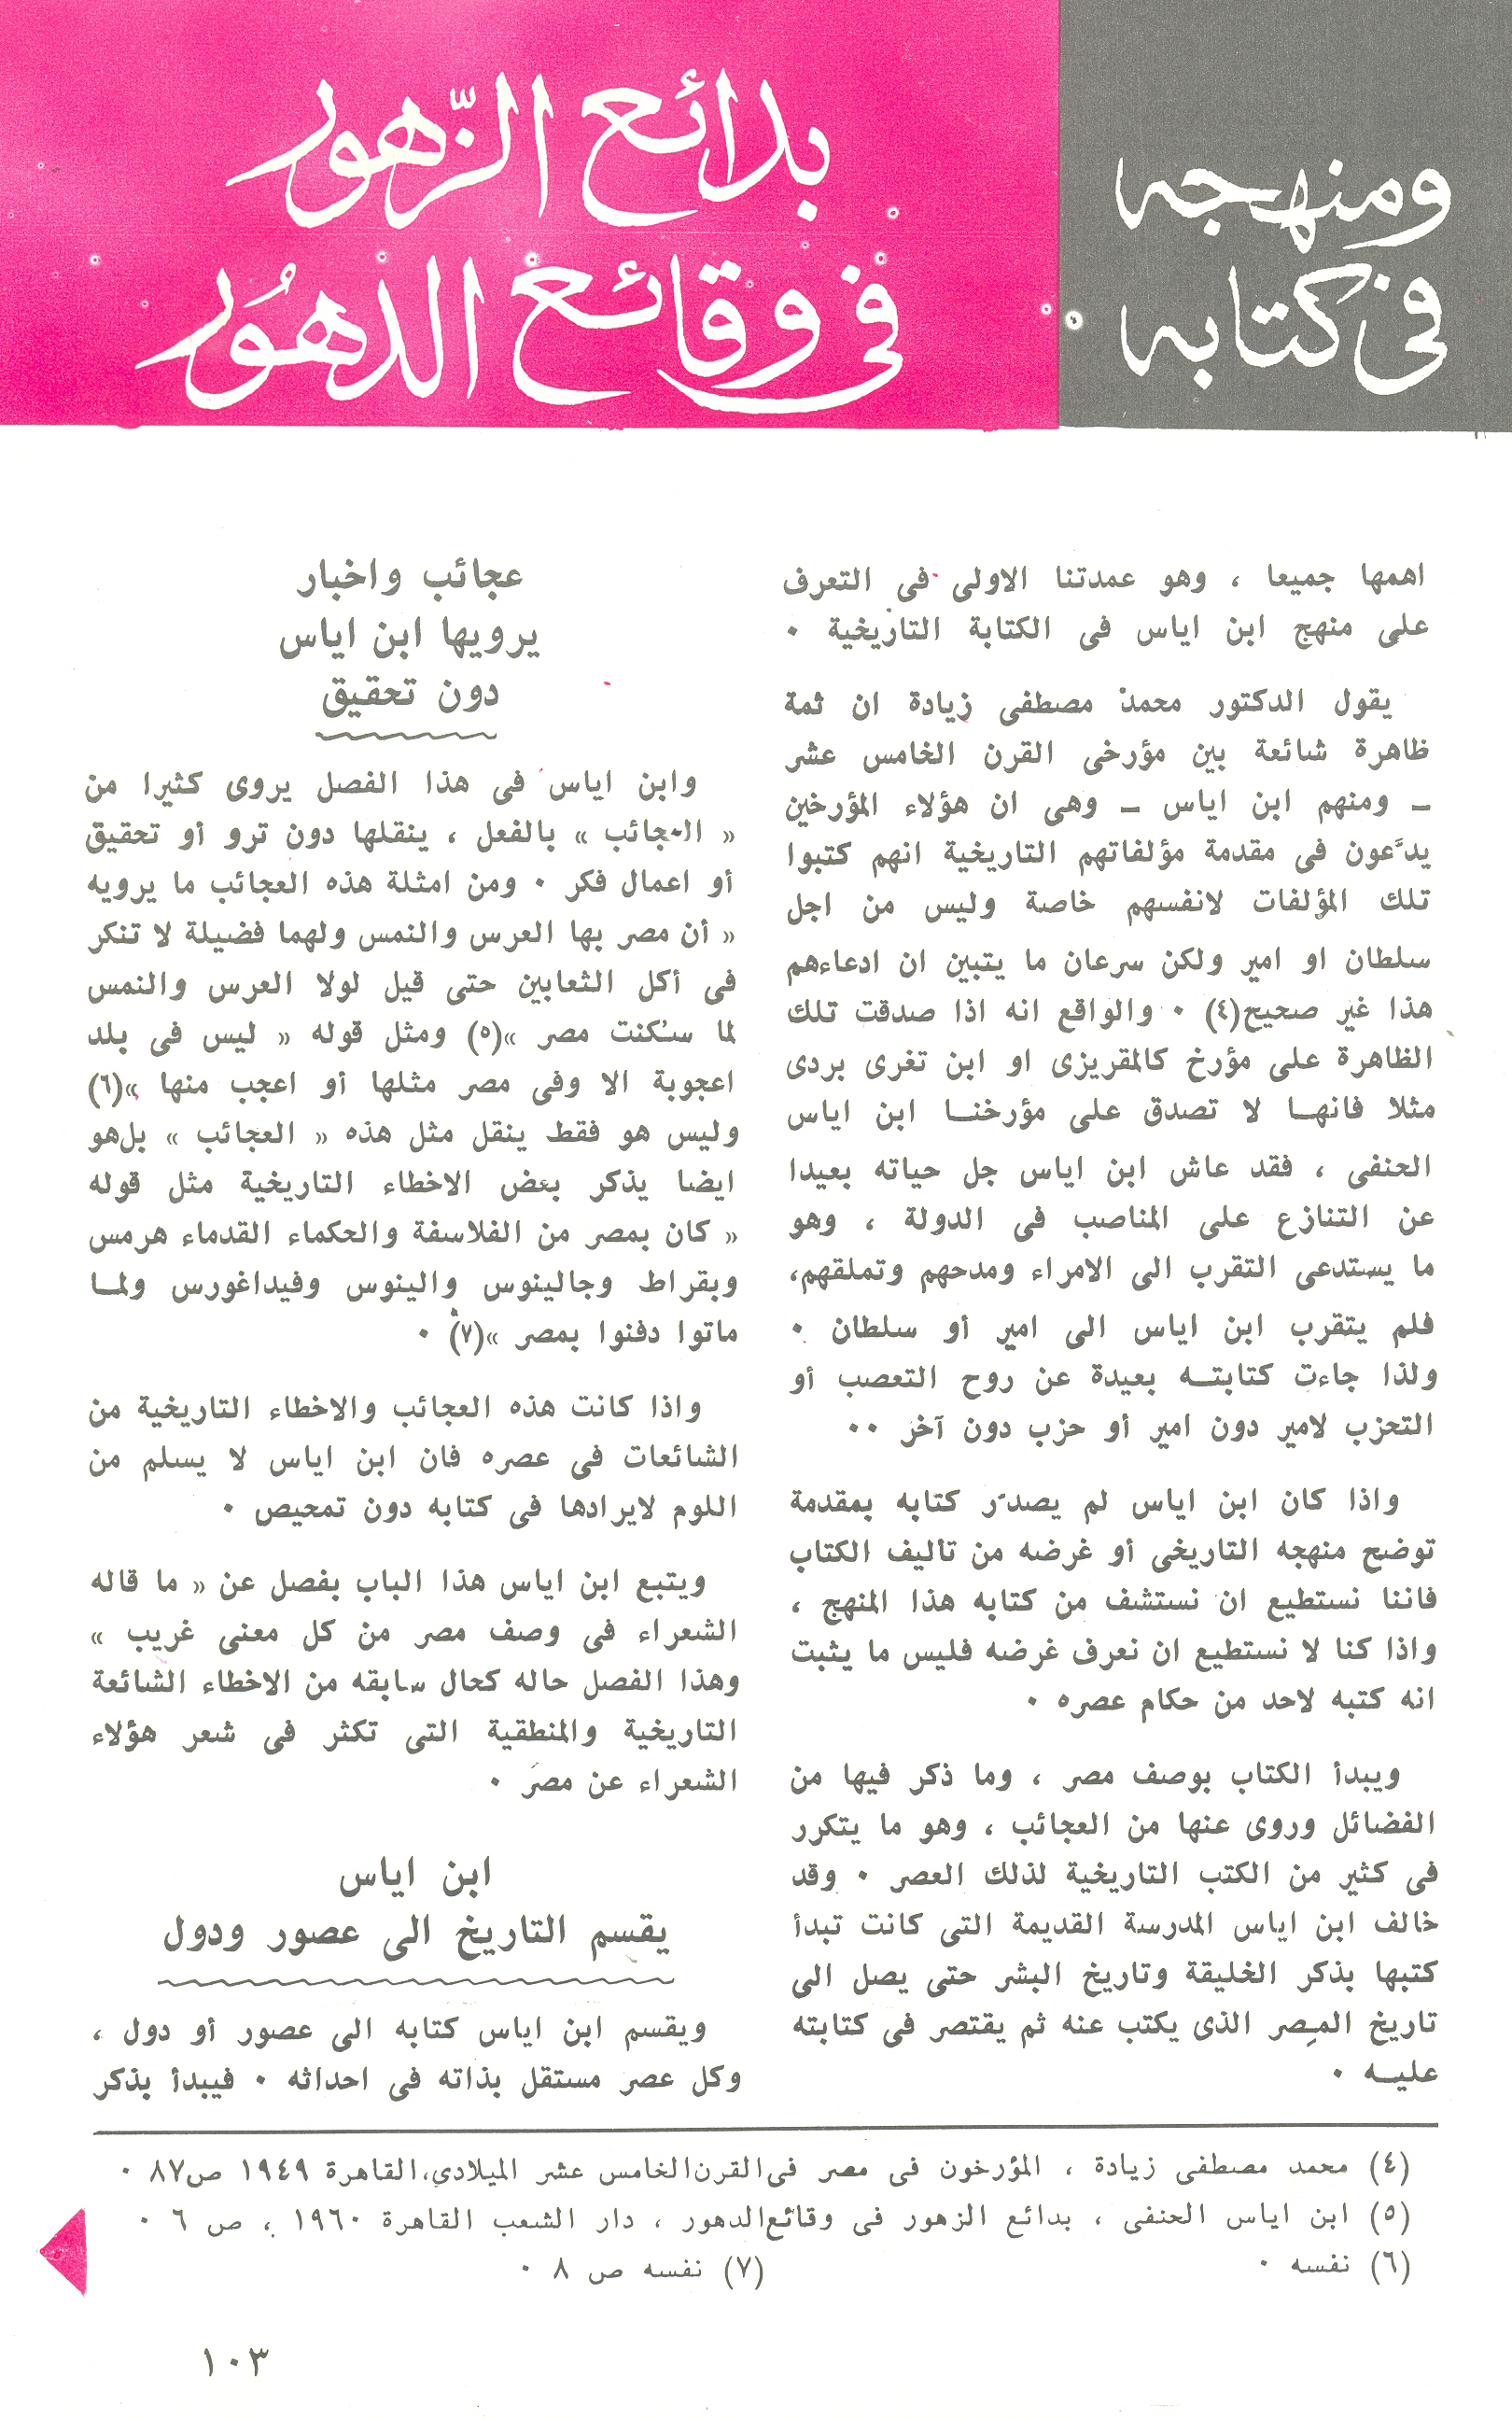 ومنهجه
فى كتابه
بدائع الزّهور
فى وقائع الدهُور
اهمها جميعا ، وهو عمدتنا الاولى فى التعرف
على منهج ابن اياس فى الكتابة التاريخية ٠
يقول الدكتور محمد مصطفى زيادة ان ثمة
ظاهرة شائعة بين مؤرخى القرن الخامس عشر
ـ ومنهم ابن اياس ـ وهى ان هؤلاء المؤرخين
يدَّعون فى مقدمة مؤلفاتهم التاريخية انهم كتبوا
تلك المؤلفات لانفسهم خاصة وليس من اجل
سلطان او امير ولكن سرعان ما يتبين ان ادعاءهم
هذا غير صحيح(٤) ٠ والواقع انه اذا صدقت تلك
الظاهرة على مؤرخ كالمقريزى او ابن تغرى بردى
مثلا فانهـا لا تصدق على مؤرخنـا ابن اياس
الحنفى ، فقد عاش ابن اياس جل حياته بعيدا
عن التنازع على المناصب فى الدولة ، وهو
ما يستدعى التقرب الى الامراء ومدحهم وتملقهم،
فلم يتقرب ابن اياس الى امير أو سلطان ٠
ولذا جاءت كتابتـه بعيدة عن روح التعصب أو
التحزب لامير دون امير أو حزب دون آخر ٠٠
واذا كان ابن اياس لم يصدّر كتابه بمقدمة
توضح منهجه التاريخى أو غرضه من تأليف الكتاب
فاننا نستطيع ان نستشف من كتابه هذا المنهج ،
واذا كنا لا نستطيع ان نعرف غرضه فليس ما يثبت
انه كتبه لاحد من حكام عصره ٠
ويبدأ الكتاب بوصف مصر ، وما ذكر فيها من
الفضائل وروى عنها من العجائب ، وهو ما يتكرر
فى كثير من الكتب التاريخية لذلك العصر ٠ وقد
خالف ابن اياس المدرسة القديمة التى كانت تبدأ
كتبها بذكر الخليقة وتاريخ البشر حتى يصل الى
تاريخ المصر الذى يكتب عنه ثم يقتصر فى كتابته
عليـه ٠
عجائب واخبار
يرويها ابن اياس
دون تحقيق
وابن اياس فى هذا الفصل يروى كثيرا من
« العجائب » بالفعل ، ينقلها دون ترو أو تحقيق
أو اعمال فكر ٠ ومن امثلة هذه العجائب ما يرويه
« أن مصر بها العرس والنمس ولهما فضيلة لا تنكر
فى أكل الثعابين حتى قيل لولا العرس والنمس
لما سكنت مصر »(٥) ومثل قوله « ليس فى بلد
اعجوبة الا وفى مصر مثلها أو اعجب منها »(٦)
وليس هو فقط ينقل مثل هذه « العجائب » بل هو
ايضا يذكر بعض الاخطاء التاريخية مثل قوله
« كان بمصر من الفلاسفة والحكماء القدماء هرمس
وبقراط وجالينوس والينوس وفيداغورس ولمـا
ماتوا دفنوا بمصر »(٧) ٠
واذا كانت هذه العجائب والاخطاء التاريخية من
الشائعات فى عصره فان ابن اياس لا يسلم من
اللوم لايرادها فى كتابه دون تمحيص ٠
ويتبع ابن اياس هذا الباب بفصل عن « ما قاله
الشعراء فى وصف مصر من كل معنى غريب »
وهذا الفصل حاله كحال سابقه من الاخطاء الشائعة
التاريخية والمنطقية التى تكثر فى شعر هؤلاء
الشعراء عن مصر ٠
ابن اياس
يقسم التاريخ الى عصور ودول
ويقسم ابن اياس كتابه الى عصور أو دول ،
وكل عصر مستقل بذاته فى احداثه ٠ فيبدأ بذكر
(٤) محمد مصطفى زيادة ، المؤرخون فى مصر فى القرن الخامس عشر الميلادي، القاهرة ١٩٤٩ ص٨٧ ٠
(٥) ابن اياس الحنفى ، بدائع الزهور فى وقائع الدهور ، دار الشعب القاهرة ١٩٦٠ ، ص ٦ ٠
(٦) نفسه ٠ (٧) نفسه ص ٨ ٠
١٠٣